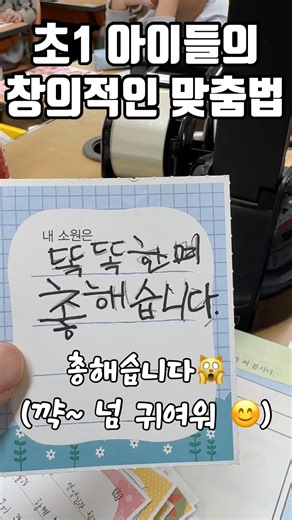 초1 아이들의
창의적인 맞춤법
내 소원은
똑똑한며
촣해습니다.
총해습니다🙀
(꺅~ 넘 귀여워 😊)